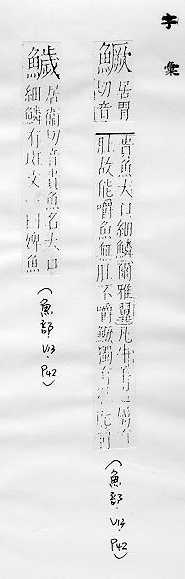 字彙
鱖
居胃
切音
貴魚大口細鱗爾雅翼凡牛有
肚故能嚼魚無肚不嚼鱖獨有
(魚部, V13, P42)
鱥
居衞切音貴魚名大口
細鱗有斑文一曰婢魚
(魚部 V13, P42)